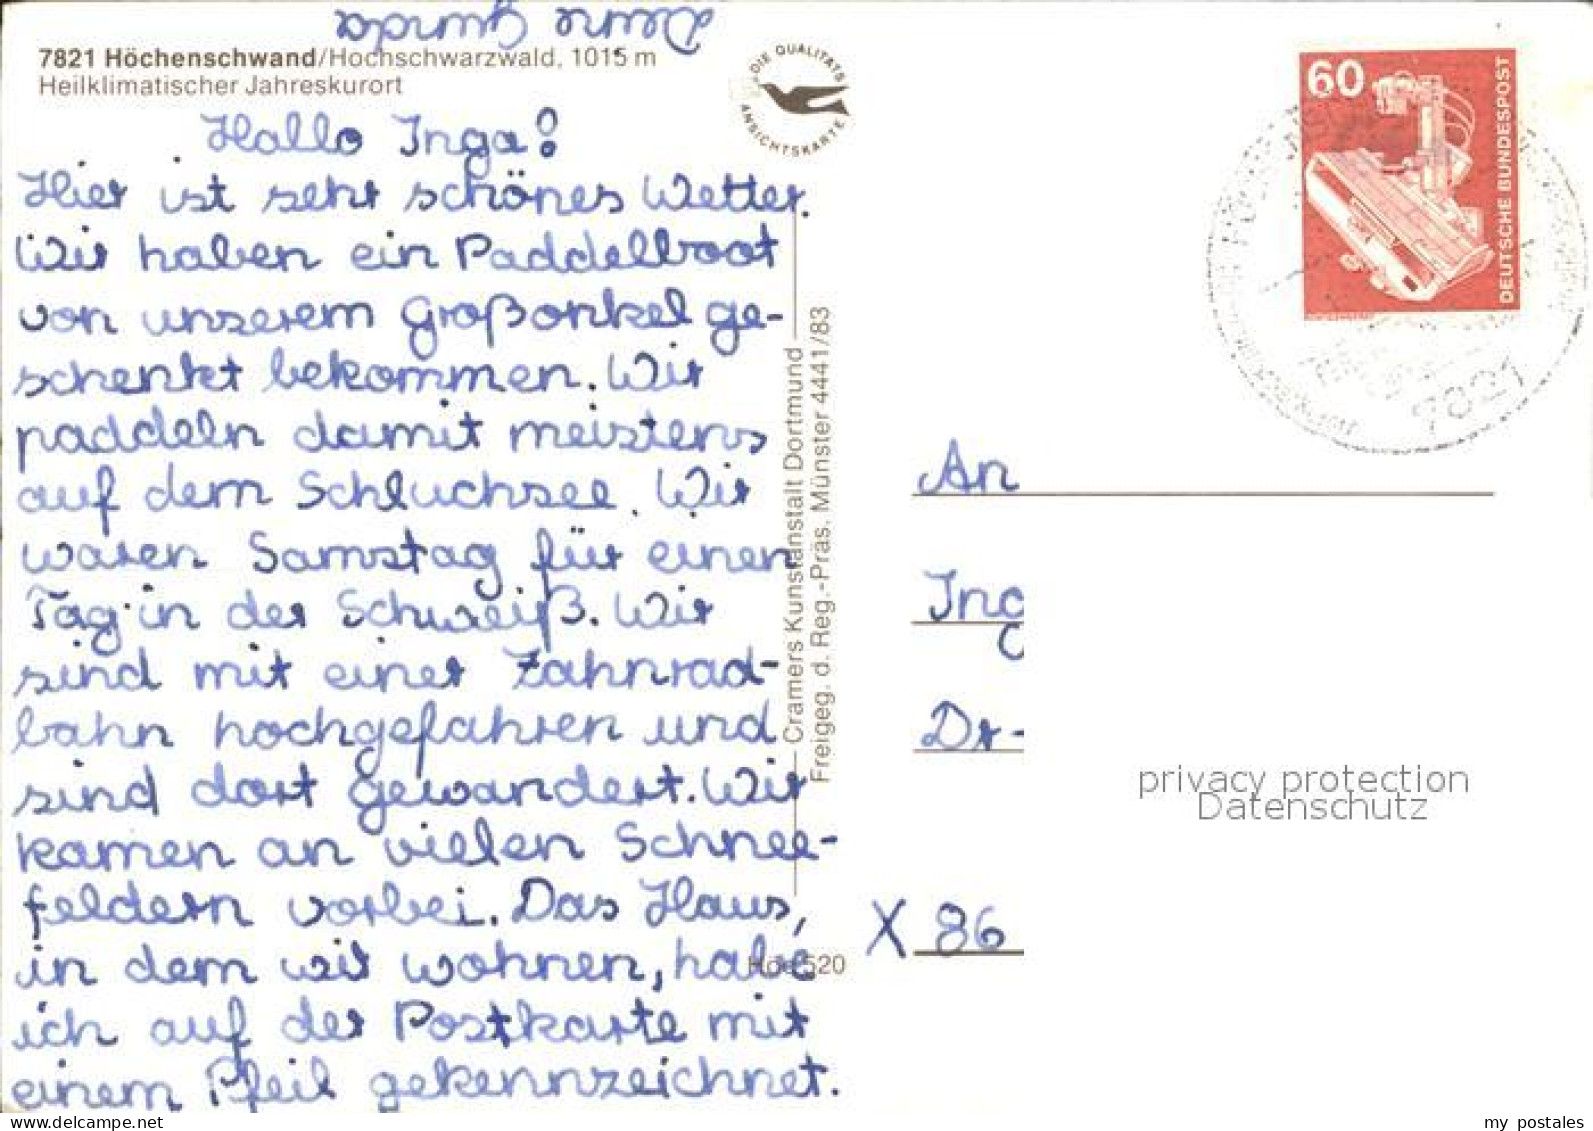 Deine Gunda
7821 Höchenschwand/Hochschwarzwald, 1015 m
Heilklimatischer Jahreskurort
DIE QUALITÄTS ANSICHTSKARTE
Hallo Inga!
Hier ist sehr schönes Wetter.
Wir haben ein Paddelboot
von unserem Großonkel ge-
schenkt bekommen. Wir
paddeln damit meistens
auf dem Schluchsee. Wir
waren Samstag für einen
Tag in der Schweiß. Wir
sind mit einer Zahnrad-
bahn hochgefahren und
sind dort gewandert. Wir
kamen an vielen Schnee-
feldern vorbei. Das Haus,
in dem wir wohnen, habe
ich auf der Postkarte mit
einem Pfeil gekennzeichnet.
Cramers Kunstanstalt Dortmund
Freigeg. d. Reg.-Präs. Münster 4441/83
Hoe 520
60
DEUTSCHE BUNDESPOST
7821
An
Ing
Dr-
X 86
privacy protection
Datenschutz
my postales